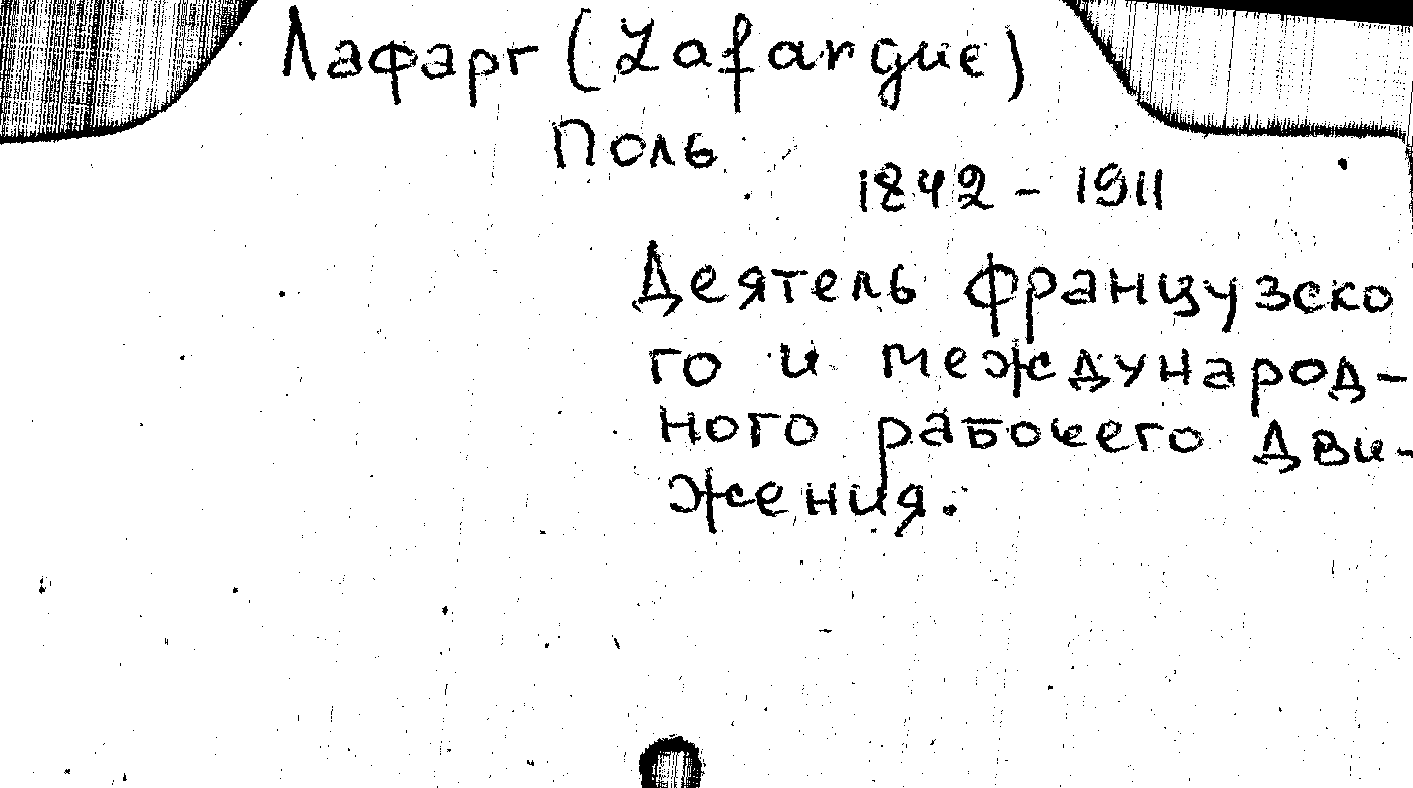 Лафарг (Lafargue)
Поль
1842 - 1911
Деятель французско
го и международ-
ного рабочего дви-
жения.